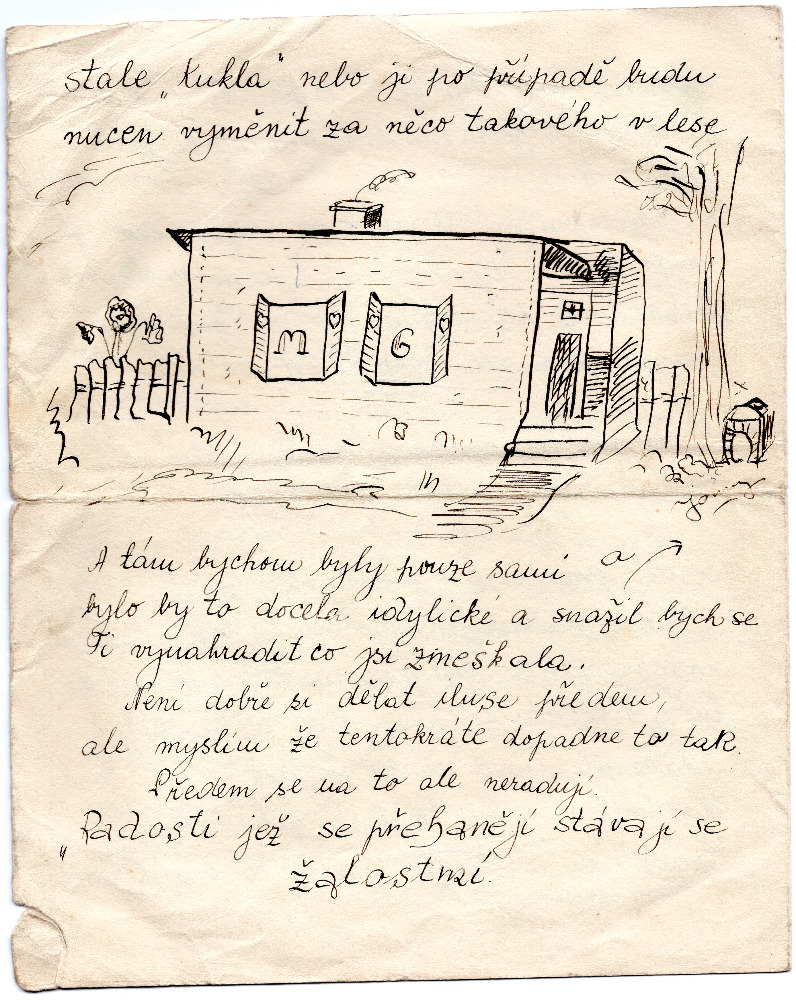 stále „Kukla" nebo ji po případě budu
nucen vyměnit za něco takového v lese
M G
A tám bychom byly pouze sami a
bylo by to docela idylické a snažil bych se
Ti vynahradit co jsi zmeškala.
Není dobře si dělat iluse předem,
ale myslím že tentokráte dopadne to tak.
Předem se na to ale neraduji.
„Radosti jež se přehanějí stávají se
žalostmí.